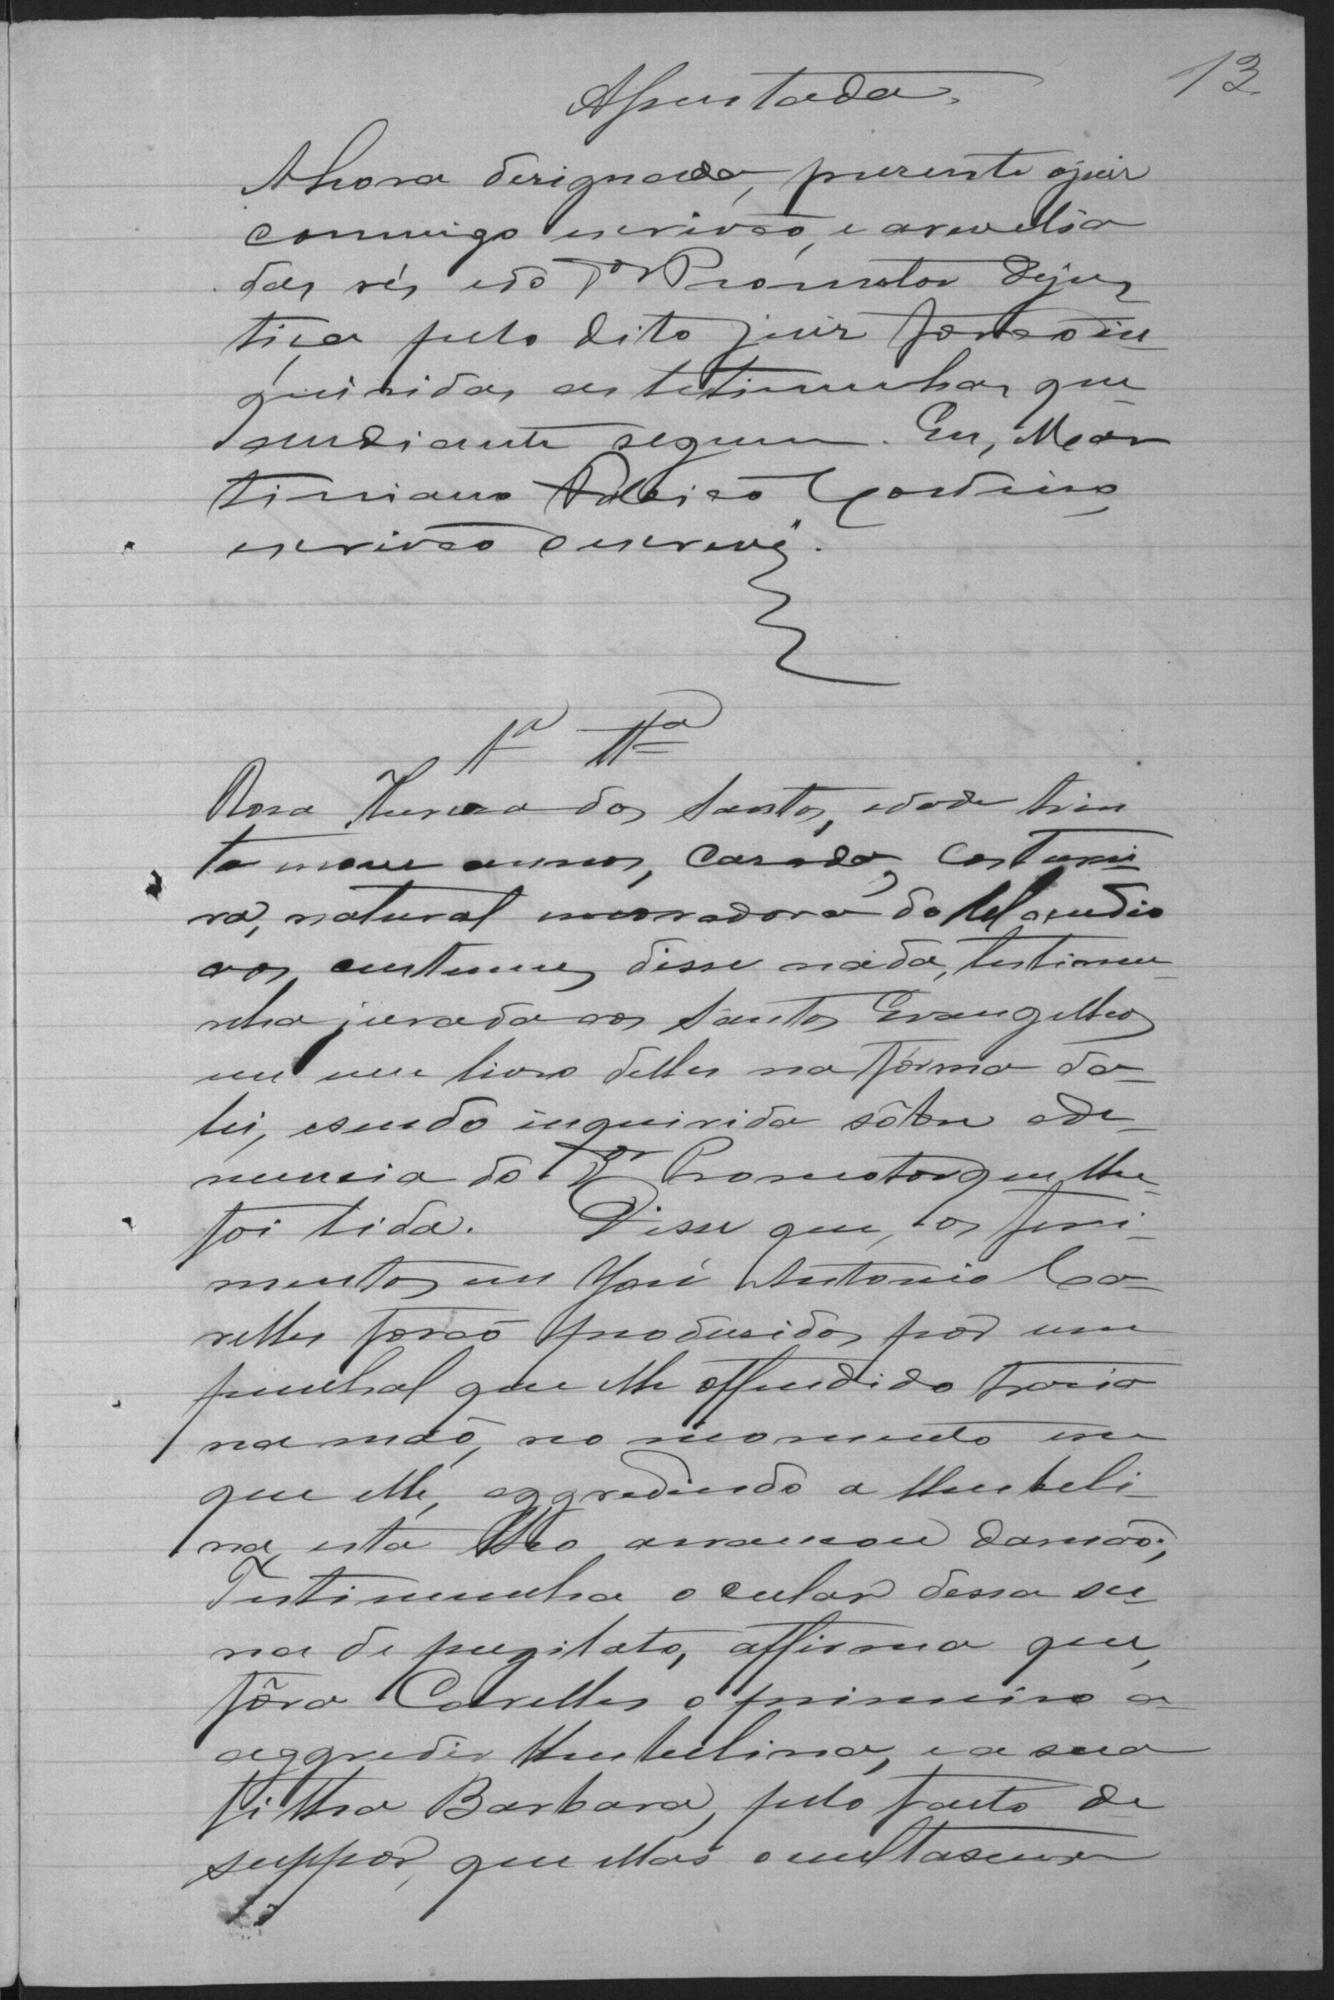 13
Assentada.
A hora designada, presente o juiz
commigo escrivão, e a revelia
das rés e do Dr Promotor de jus-
tiça pelo dito juiz forão in-
queridas as testimunhas que
adiante seguem. Eu, Mar
timiano
escrivão o escrevi.
1ª Tª
Rosa Thereza dos Santos, edade trin
ta nove annos, casada, costurei-
ra, natural e moradora do
aos custumes disse nada, testimu-
nha jurada aos Santos Evangelhos
em um livro delles na fórma da
lei, e sendo inquirida sôbre a de-
nuncia do Dr Promotor que lhe
foi lida. Disse que, os feri-
mentos em José Antonio Ca-
relles forão produsidos por um
punhal que elle offendido trazia
na mão, no momento em
que elle, aggredindo a Umbeli-
na, esta lho arrancou da mão;
Testimunha ocular dessa sce-
na de pugilato, affirma que,
fôra Carelles o primeiro a
aggredir Umbelina, e a sua
filha Barbara, pelo facto de
suppor, que ellas occultassem